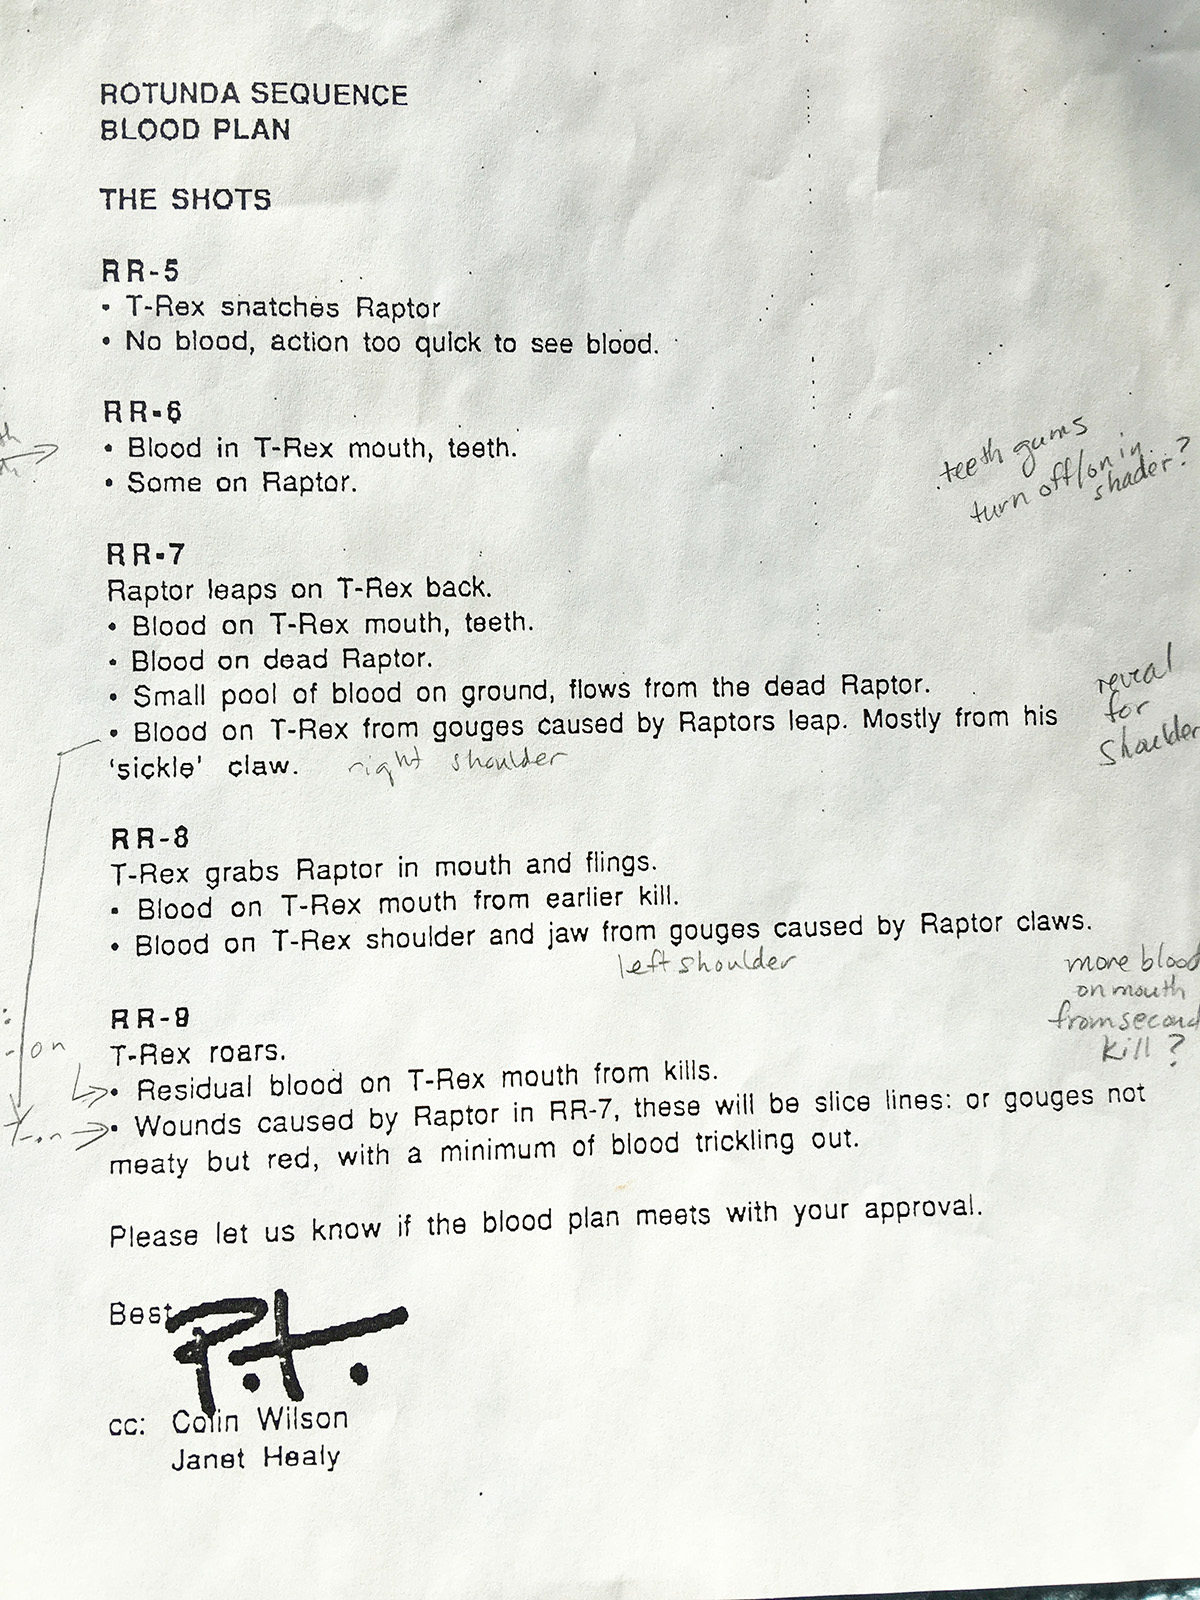 ROTUNDA SEQUENCE
BLOOD PLAN
THE SHOTS
RR-5
• T-Rex snatches Raptor
• No blood, action too quick to see blood.
RR-6
• Blood in T-Rex mouth, teeth.
• Some on Raptor.
teeth gums
turn off/on in
shader?
RR-7
Raptor leaps on T-Rex back.
• Blood on T-Rex mouth, teeth.
• Blood on dead Raptor.
• Small pool of blood on ground, flows from the dead Raptor.
• Blood on T-Rex from gouges caused by Raptors leap. Mostly from his
'sickle' claw. right shoulder
reveal
for
shoulder
RR-8
T-Rex grabs Raptor in mouth and flings.
• Blood on T-Rex mouth from earlier kill.
• Blood on T-Rex shoulder and jaw from gouges caused by Raptor claws.
left shoulder
more blood
on mouth
from second
kill?
RR-9
T-Rex roars.
• Residual blood on T-Rex mouth from kills.
• Wounds caused by Raptor in RR-7, these will be slice lines: or gouges not
meaty but red, with a minimum of blood trickling out.
Please let us know if the blood plan meets with your approval.
Best
P.t.
cc: Colin Wilson
Janet Healy